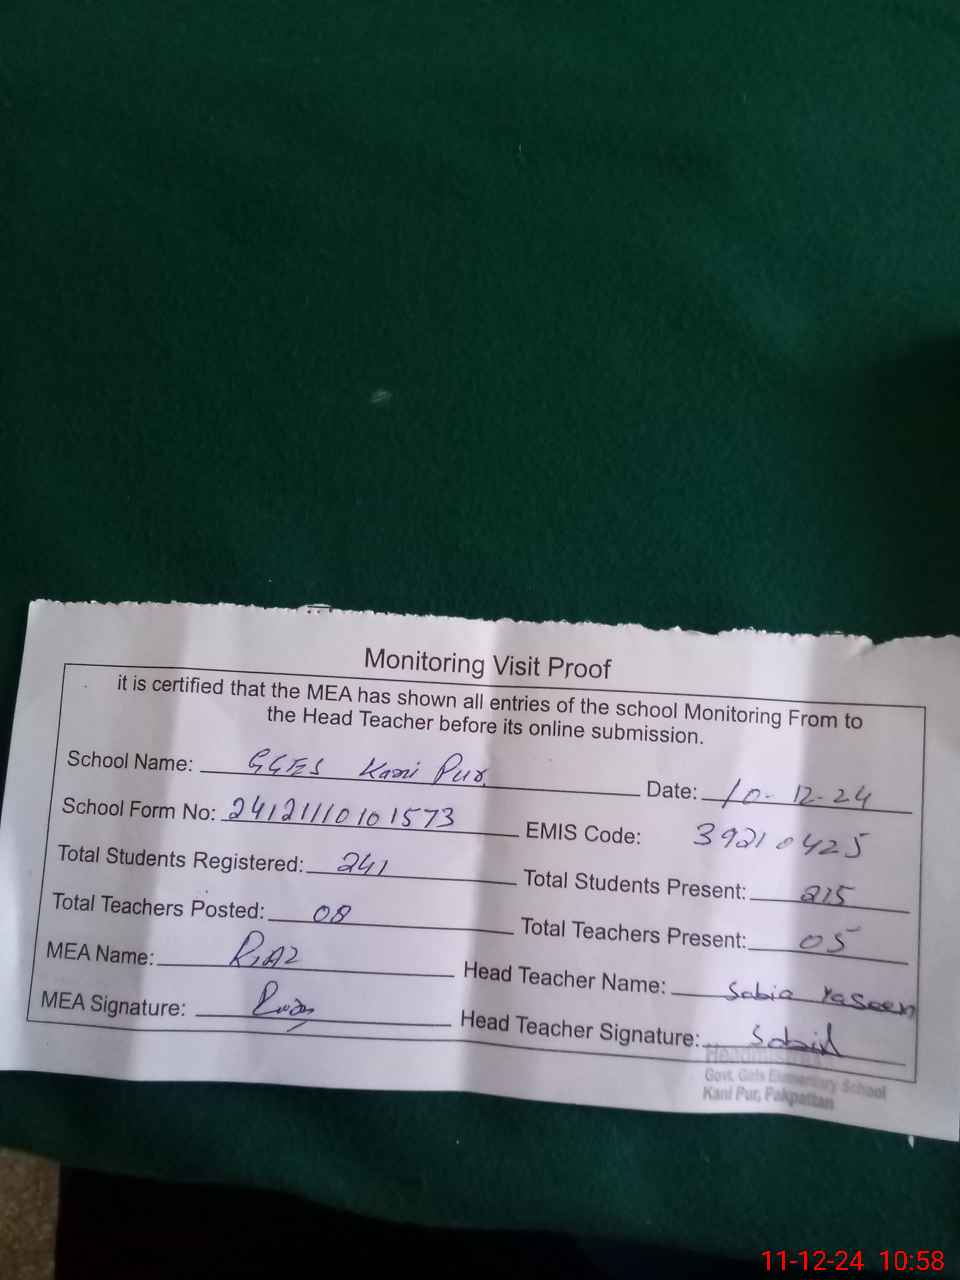 Monitoring Visit Proof
it is certified that the MEA has shown all entries of the school Monitoring From to
the Head Teacher before its online submission.
School Name: GGES Kani Pur Date: 10-12-24
School Form No: 24121110101573 EMIS Code: 39210425
Total Students Registered: 241 Total Students Present: 215
Total Teachers Posted: 08 Total Teachers Present: 05
MEA Name: RiAz Head Teacher Name: Sabia Yaseen
MEA Signature: Head Teacher Signature:
Headmistress
Govt. Girls Elementary School
Kani Pur, Pakpattan
11-12-24 10:58